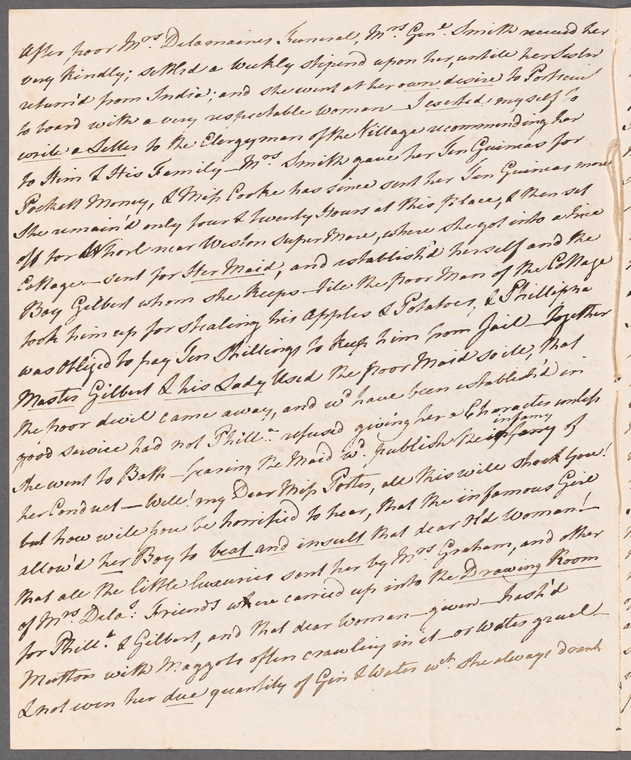 After poor Mrs. Delamaines Funeral, Mrs. Genl. Smith received her
very kindly; settled a weekly stipend upon her, untill her Sister
return'd from India; and she went at her own desire to
to board with a very respectable Woman I myself to
write a Letter to the Clergyman of the Village recommending her
to Him & His Family— Mrs. Smith gave her Ten Guineas for
Pockett Money, & Miss Cooke has since sent her Ten Guineas more
She remain'd only four & twenty Hours at this Place, & then set
off for Whorl near Weston super Mare, where she got into a nice
Cottage— sent for Her Maid, and establish'd herself and the
Boy Gilbert whom she keeps— tile the poor Man of the Cottage
took him up for stealing his Apples & Potatoes, & Phillipha
was Oblijed to pay Ten Shillings to keep him from Jail— Together
Master Gilbert & his Lady Used the poor Maid so ile, that
the poor devil came away, and wd. have been establish'd in
good service had not Philla. refused giving her a Character unless
she went to Bath— fearing the Maid wd. publish the infamy infamy of
her Conduct— Well! my Dear Miss Porter, all this will shock you!
but how will you be horrified to hear, that the infamous Girl
allow'd her Boy to beat and insult that dear Old Woman!—
that all the little luxuries sent her by Mrs. Graham, and other
of Mrs. Delas. Friends where carried up into the Drawing Room
for Philla. & Gilbert, and that dear Woman— given— hash'd
Mutton with Maggots often crawling in it— or Water gruel—
& not even her due quantity of Gin & Water wch. she always drank